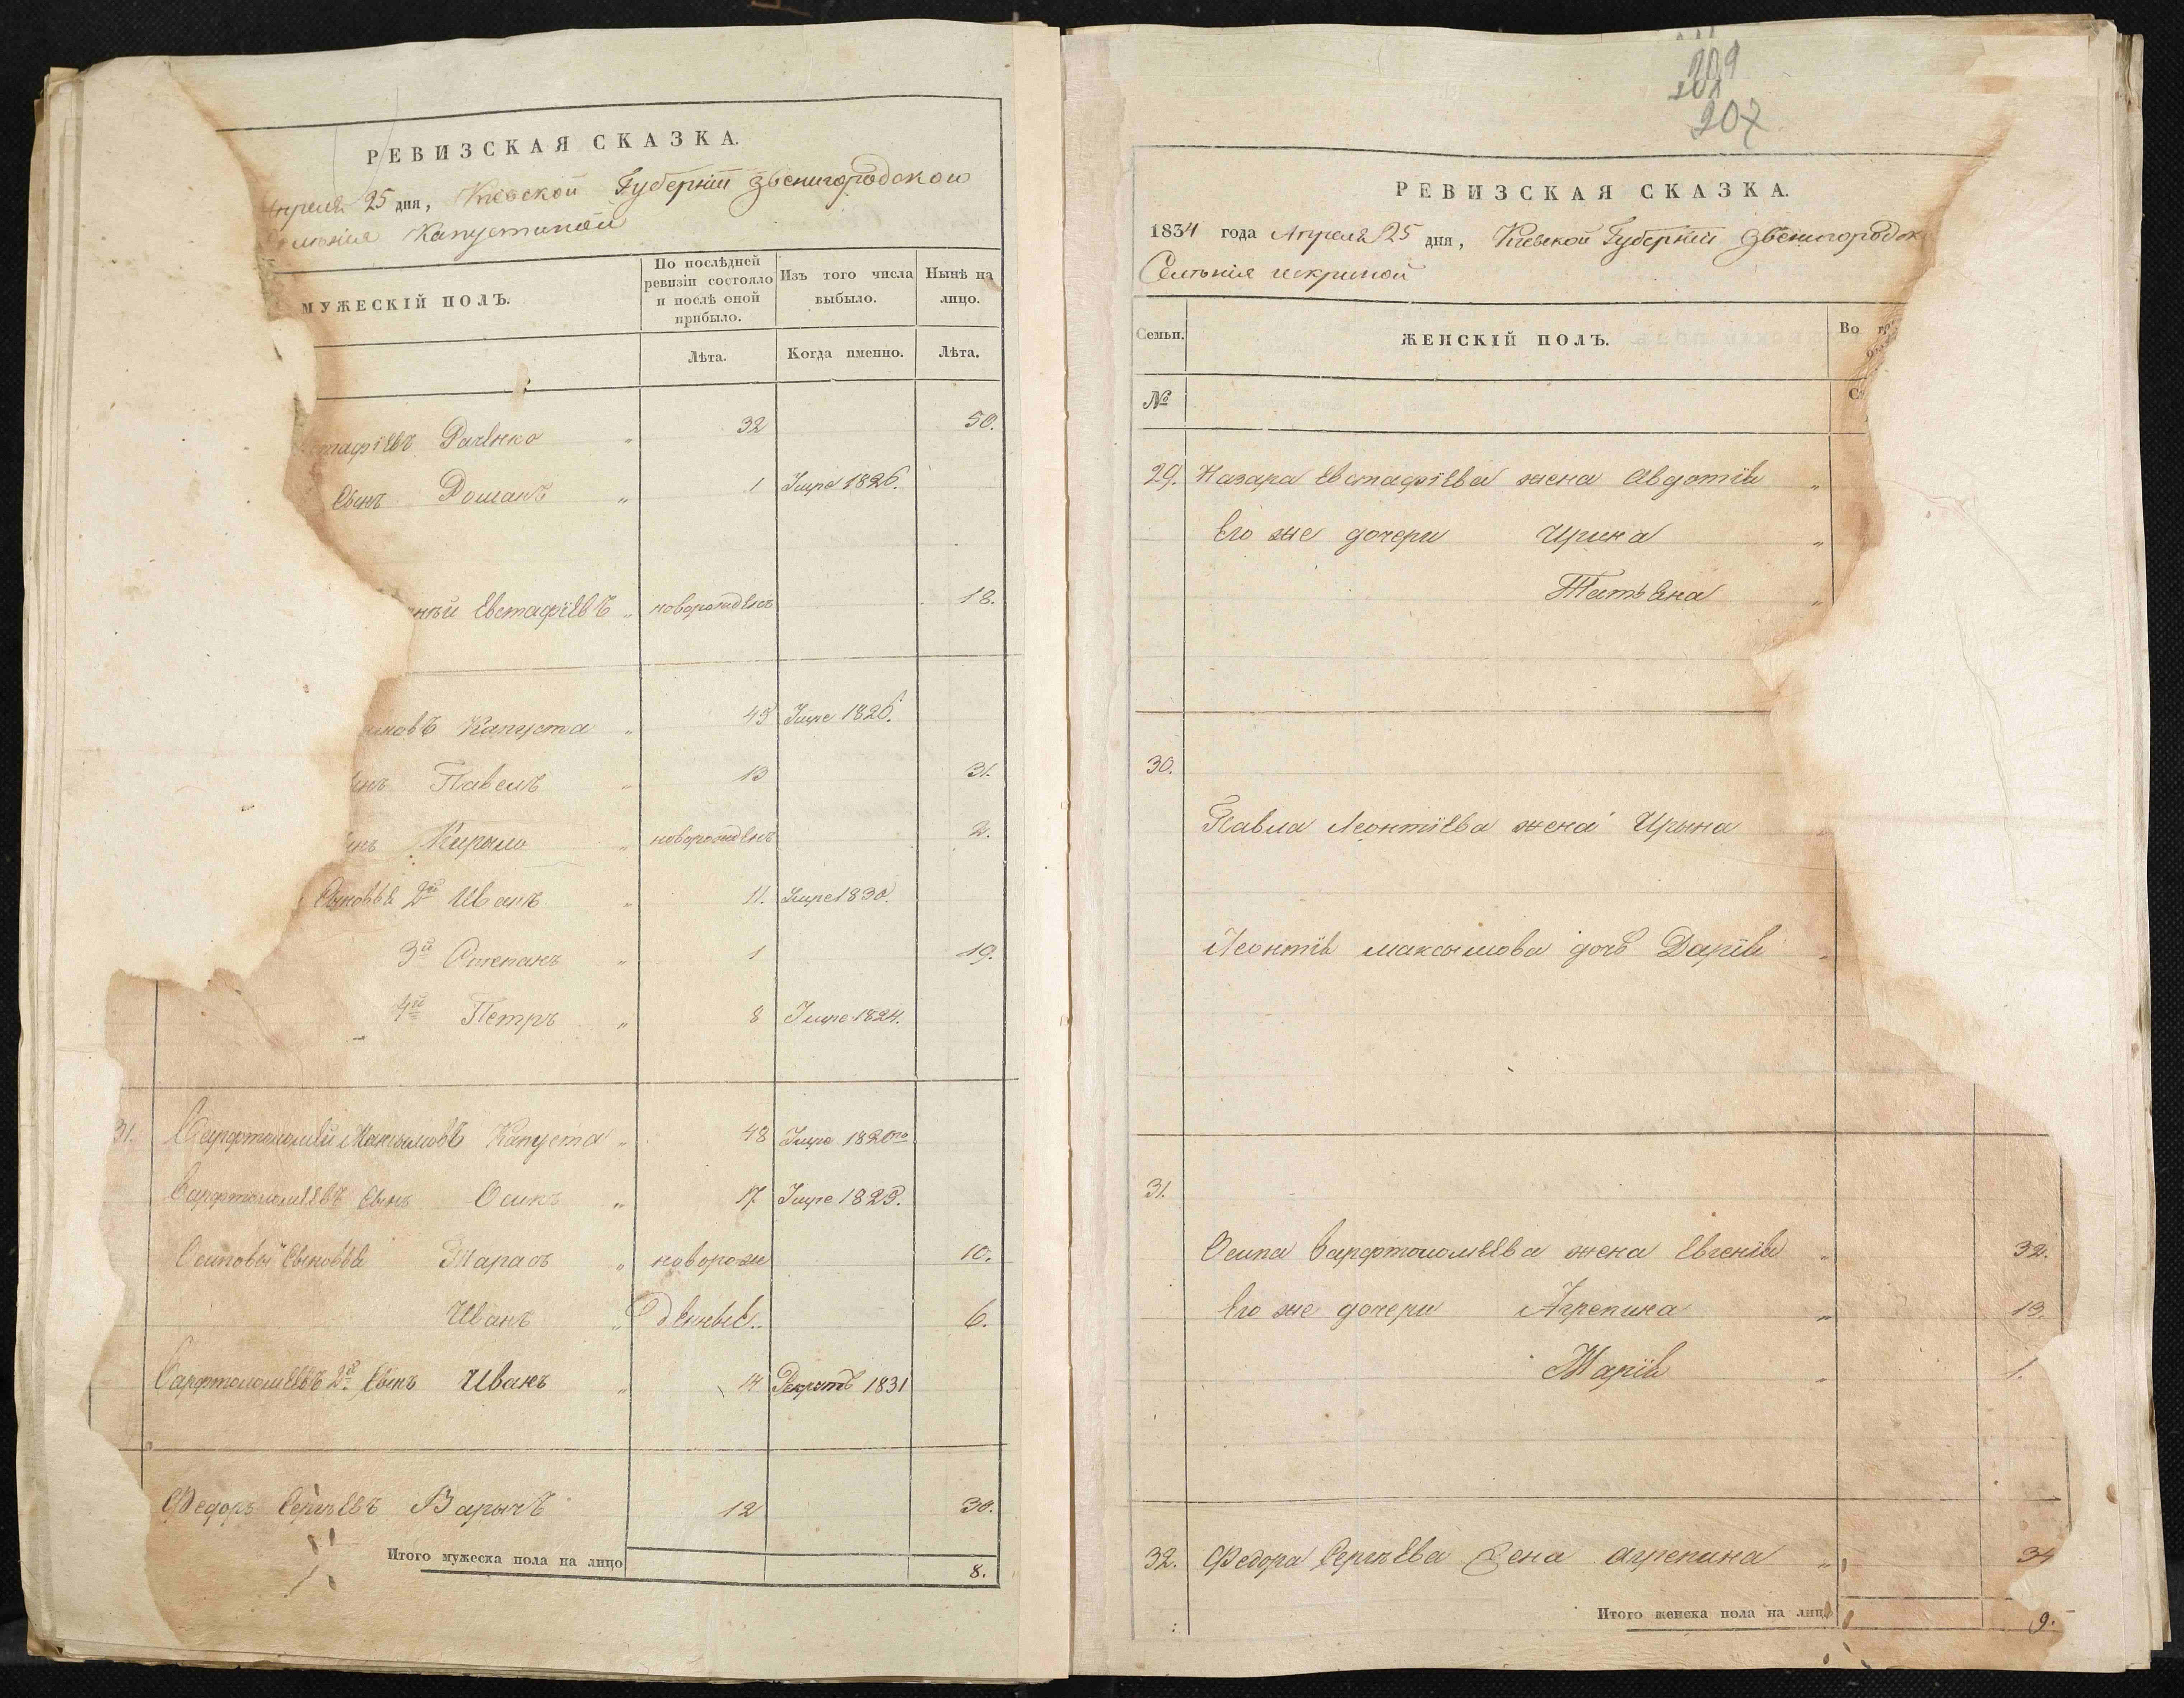 РЕВИЗСКАЯ СКАЗКА.
25 дня, Кіевской Губерніи Звенигородской
Капустиной
МУЖЕСКІЙ ПОЛЪ.
По послѣдней ревизіи состояло и послѣ оной прибыло.
Изъ того числа выбыло.
Нынѣ на лицо.
Лѣта.
Когда именно.
Лѣта.
32 50.
Сынъ 1 Умре 1826.
Евстафіевъ „ новорожденъ 18.
Капуста „ 45 Умре 1826.
Павелъ „ 13 31.
Кирыло „ новорожденъ 2.
Сыновья 2й Иванъ „ 11. Умре 1830.
3й Степанъ „ 1 19.
4й Петръ „ 8 Умре 1824.
31. Варфтоломей Максымовъ Капуста „ 48 Умре 1820го
Варфтоломеевъ Сынъ Осипъ „ 17 Умре 1829.
Осиповы Сыновья Тарасъ „ новорож 10.
Иванъ „ денные.. 6.
Варфтоломеевъ 2й Сынъ Иванъ „ 14 1831
Федоръ Сергѣевъ Варычъ 12 30.
Итого мужеска пола на лицо 8.
209
201
207
РЕВИЗСКАЯ СКАЗКА.
1834 года Апреля 25 дня, Кіевской Губерніи Звенигородск
Селѣнія Искриной
Семьи.
ЖЕНСКІЙ ПОЛЪ.
Во
№
29. Назара Евстафіева жена Авдотія „
Его же дочери Ирина „
Татьяна „
30.
Павла Леонтіева жена Ирына
Леонтія максымова дочь Дарія „
31.
Осипа Варфтоломеева жена Евгенія „ 32.
Его же дочери Агрепина „ 13.
Марія „ 1.
32. Федора Сергѣева Жена агрепина „ 34
Итого женска пола на лицо 9.